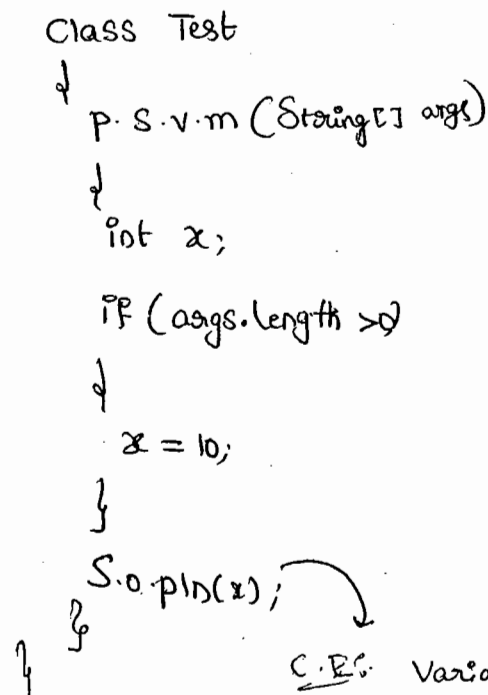 Class Test
{
p.s.v.m (String[] args)
{
int x;
if (args.length >0)
{
x = 10;
}
S.o.pln(x);
}
}
C.E: